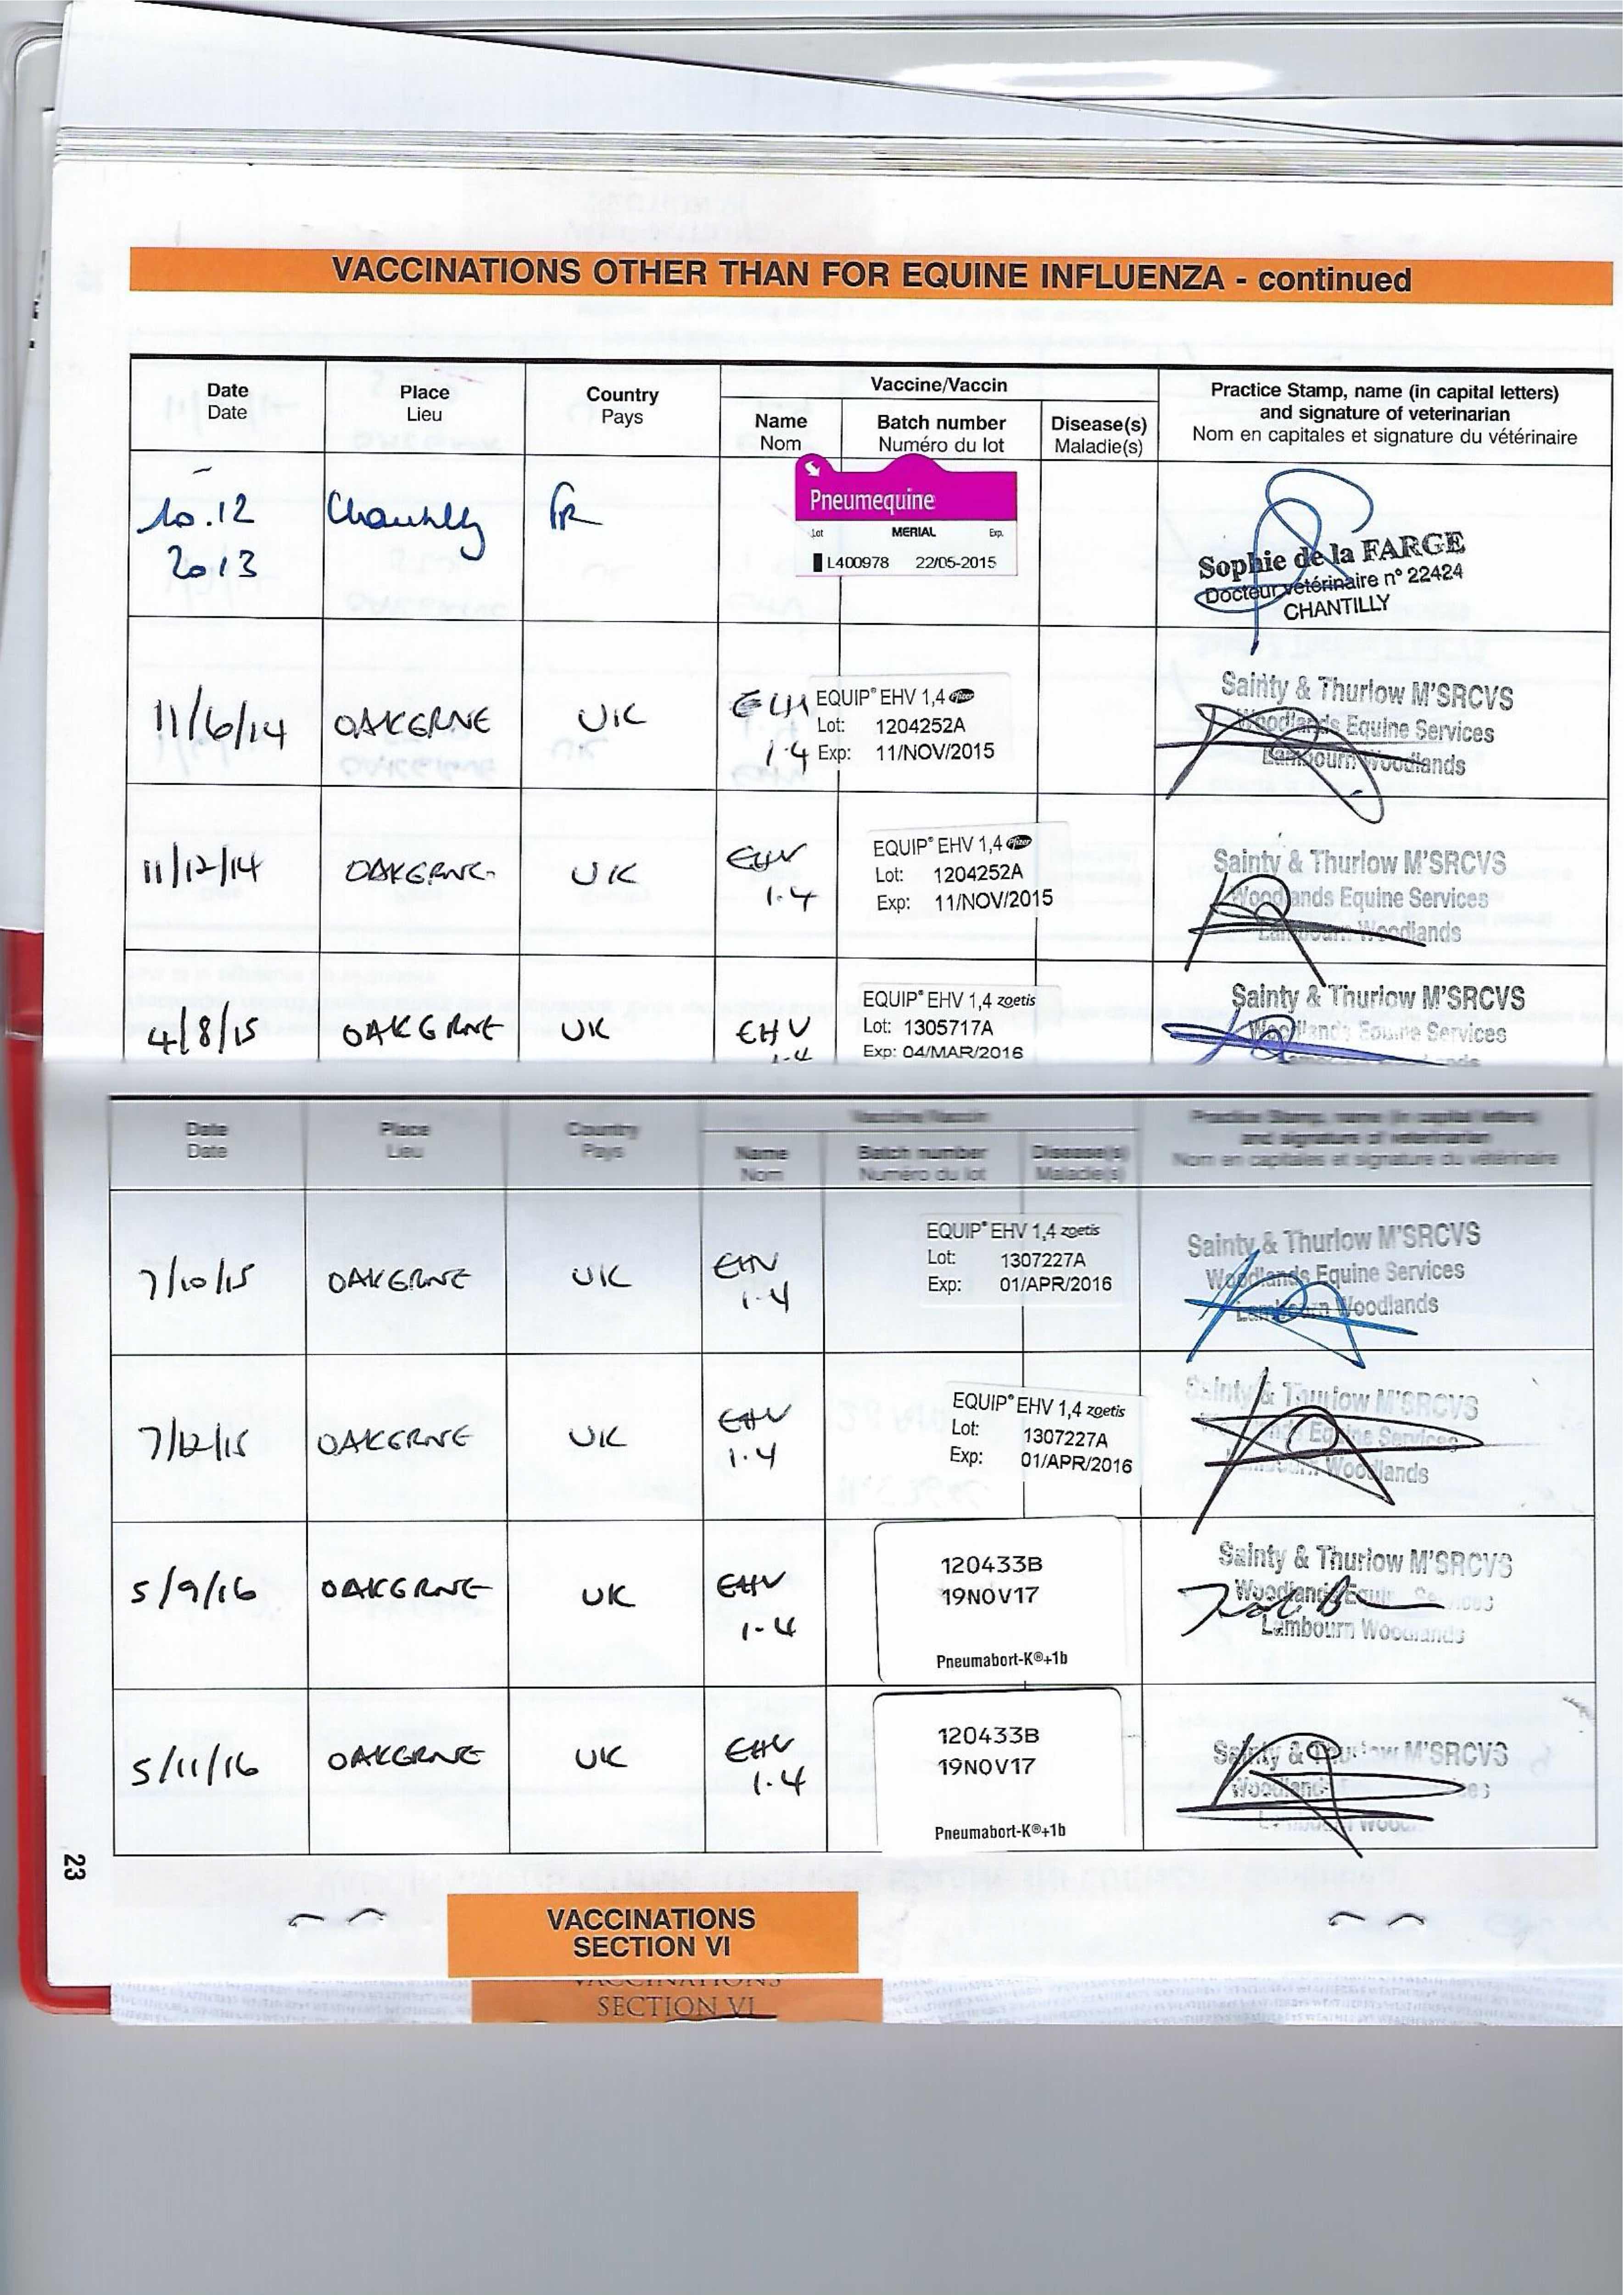 VACCINATIONS OTHER THAN FOR EQUINE INFLUENZA - continued
Date
Date
Place
Lieu
Country
Pays
Vaccine/Vaccin
Name
Nom
Batch number
Numéro du lot
Disease(s)
Maladie(s)
Practice Stamp, name (in capital letters)
and signature of veterinarian
Nom en capitales et signature du vétérinaire
10.12
2013
Chantilly
FR
Pneumequine
Lot MERIAL Exp.
L400978 22/05-2015
Sophie de la FARGE
Docteur vétérinaire n° 22424
CHANTILLY
11/6/14
UK
1.4
EQUIP® EHV 1,4 Pfizer
Lot: 1204252A
Exp: 11/NOV/2015
Sainty & Thurlow M'SRCVS
Woodlands Equine Services
Lambourn Woodlands
11/12/14
UK
EHV
1.4
EQUIP® EHV 1,4 Pfizer
Lot: 1204252A
Exp: 11/NOV/2015
Sainty & Thurlow M'SRCVS
Woodlands Equine Services
Lambourn Woodlands
4/8/15
UK
EHV
1.4
EQUIP® EHV 1,4 zoetis
Lot: 1305717A
Exp: 04/MAR/2016
Sainty & Thurlow M'SRCVS
Woodlands Equine Services
Date
Date
Place
Lieu
Country
Pays
Vaccine/Vaccin
Name
Nom
Batch number
Numéro du lot
Disease(s)
Maladie(s)
Practice Stamp, name (in capital letters)
and signature of veterinarian
Nom en capitales et signature du vétérinaire
7/10/15
UK
EHV
1.4
EQUIP® EHV 1,4 zoetis
Lot: 1307227A
Exp: 01/APR/2016
Sainty & Thurlow M'SRCVS
Woodlands Equine Services
Lambourn Woodlands
7/12/15
UK
EHV
1.4
EQUIP® EHV 1,4 zoetis
Lot: 1307227A
Exp: 01/APR/2016
Sainty & Thurlow M'SRCVS
Equine Services
Woodlands
5/9/16
UK
EHV
1-4
120433B
19NOV17
Pneumabort-K®+1b
Sainty & Thurlow M'SRCVS
Woodlands Equine Services
Lambourn Woodlands
5/11/16
UK
EHV
1.4
120433B
19NOV17
Pneumabort-K®+1b
Sainty & Thurlow M'SRCVS
23
VACCINATIONS
SECTION VI
VACCINATIONS
SECTION VI